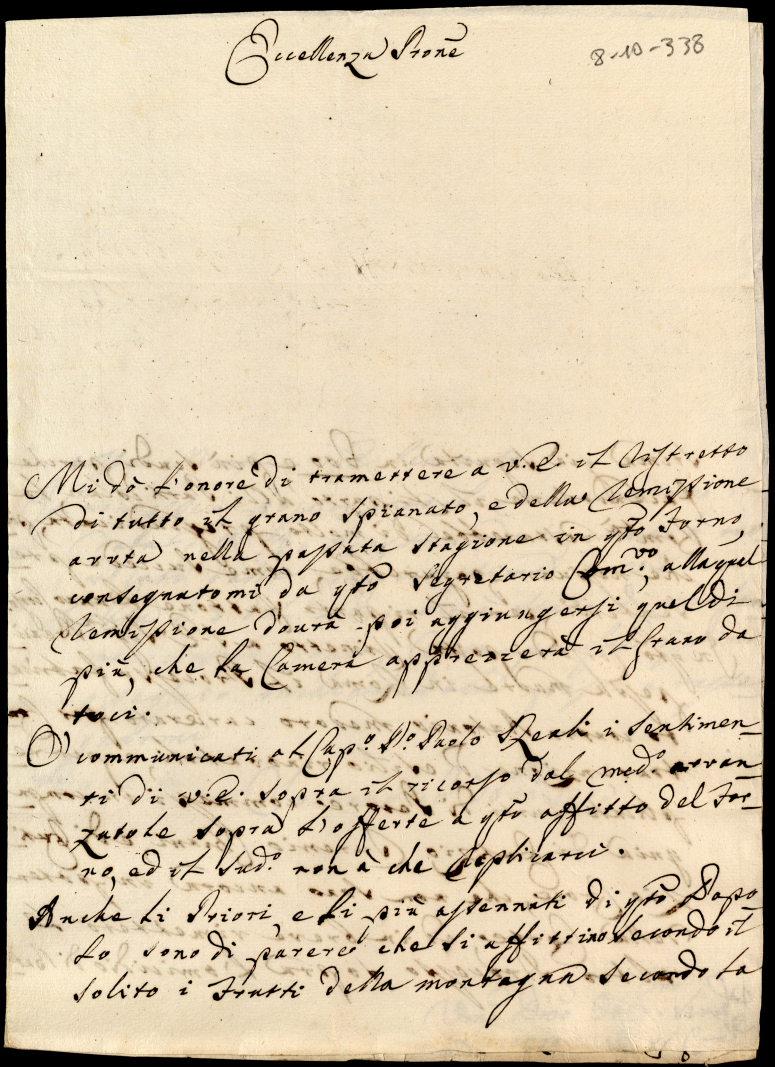 Eccellenza Prone
8-10-338
Mi dò l'onore di tramettere a V.E. il ristretto
di tutto il grano spianato, e della remissione
avuta nella passata stagione in qto Forno,
consegnatomi da qto Segretario Com.vo, alla qual
remissione dovrà poi aggiungersi quel di
più, che la Camera apprezierà il grano da
toci.
O' communicati al Cap.o D.o Paolo Reali i sentimen-
ti di V.E. sopra il ricorso dal med.o avvan-
zatole sopra l'offerte a qto affitto del For-
no, ed il sud.o non à che replicarci.
Anche li Priori, e li più assennati di qto Popo
lo sono di parere che si affittino secondo il
solito i frutti della montagna secondo la